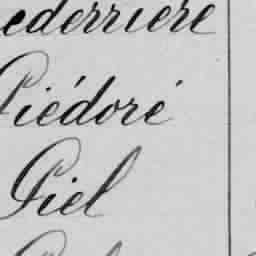 ederriere
Piédoré
Piel